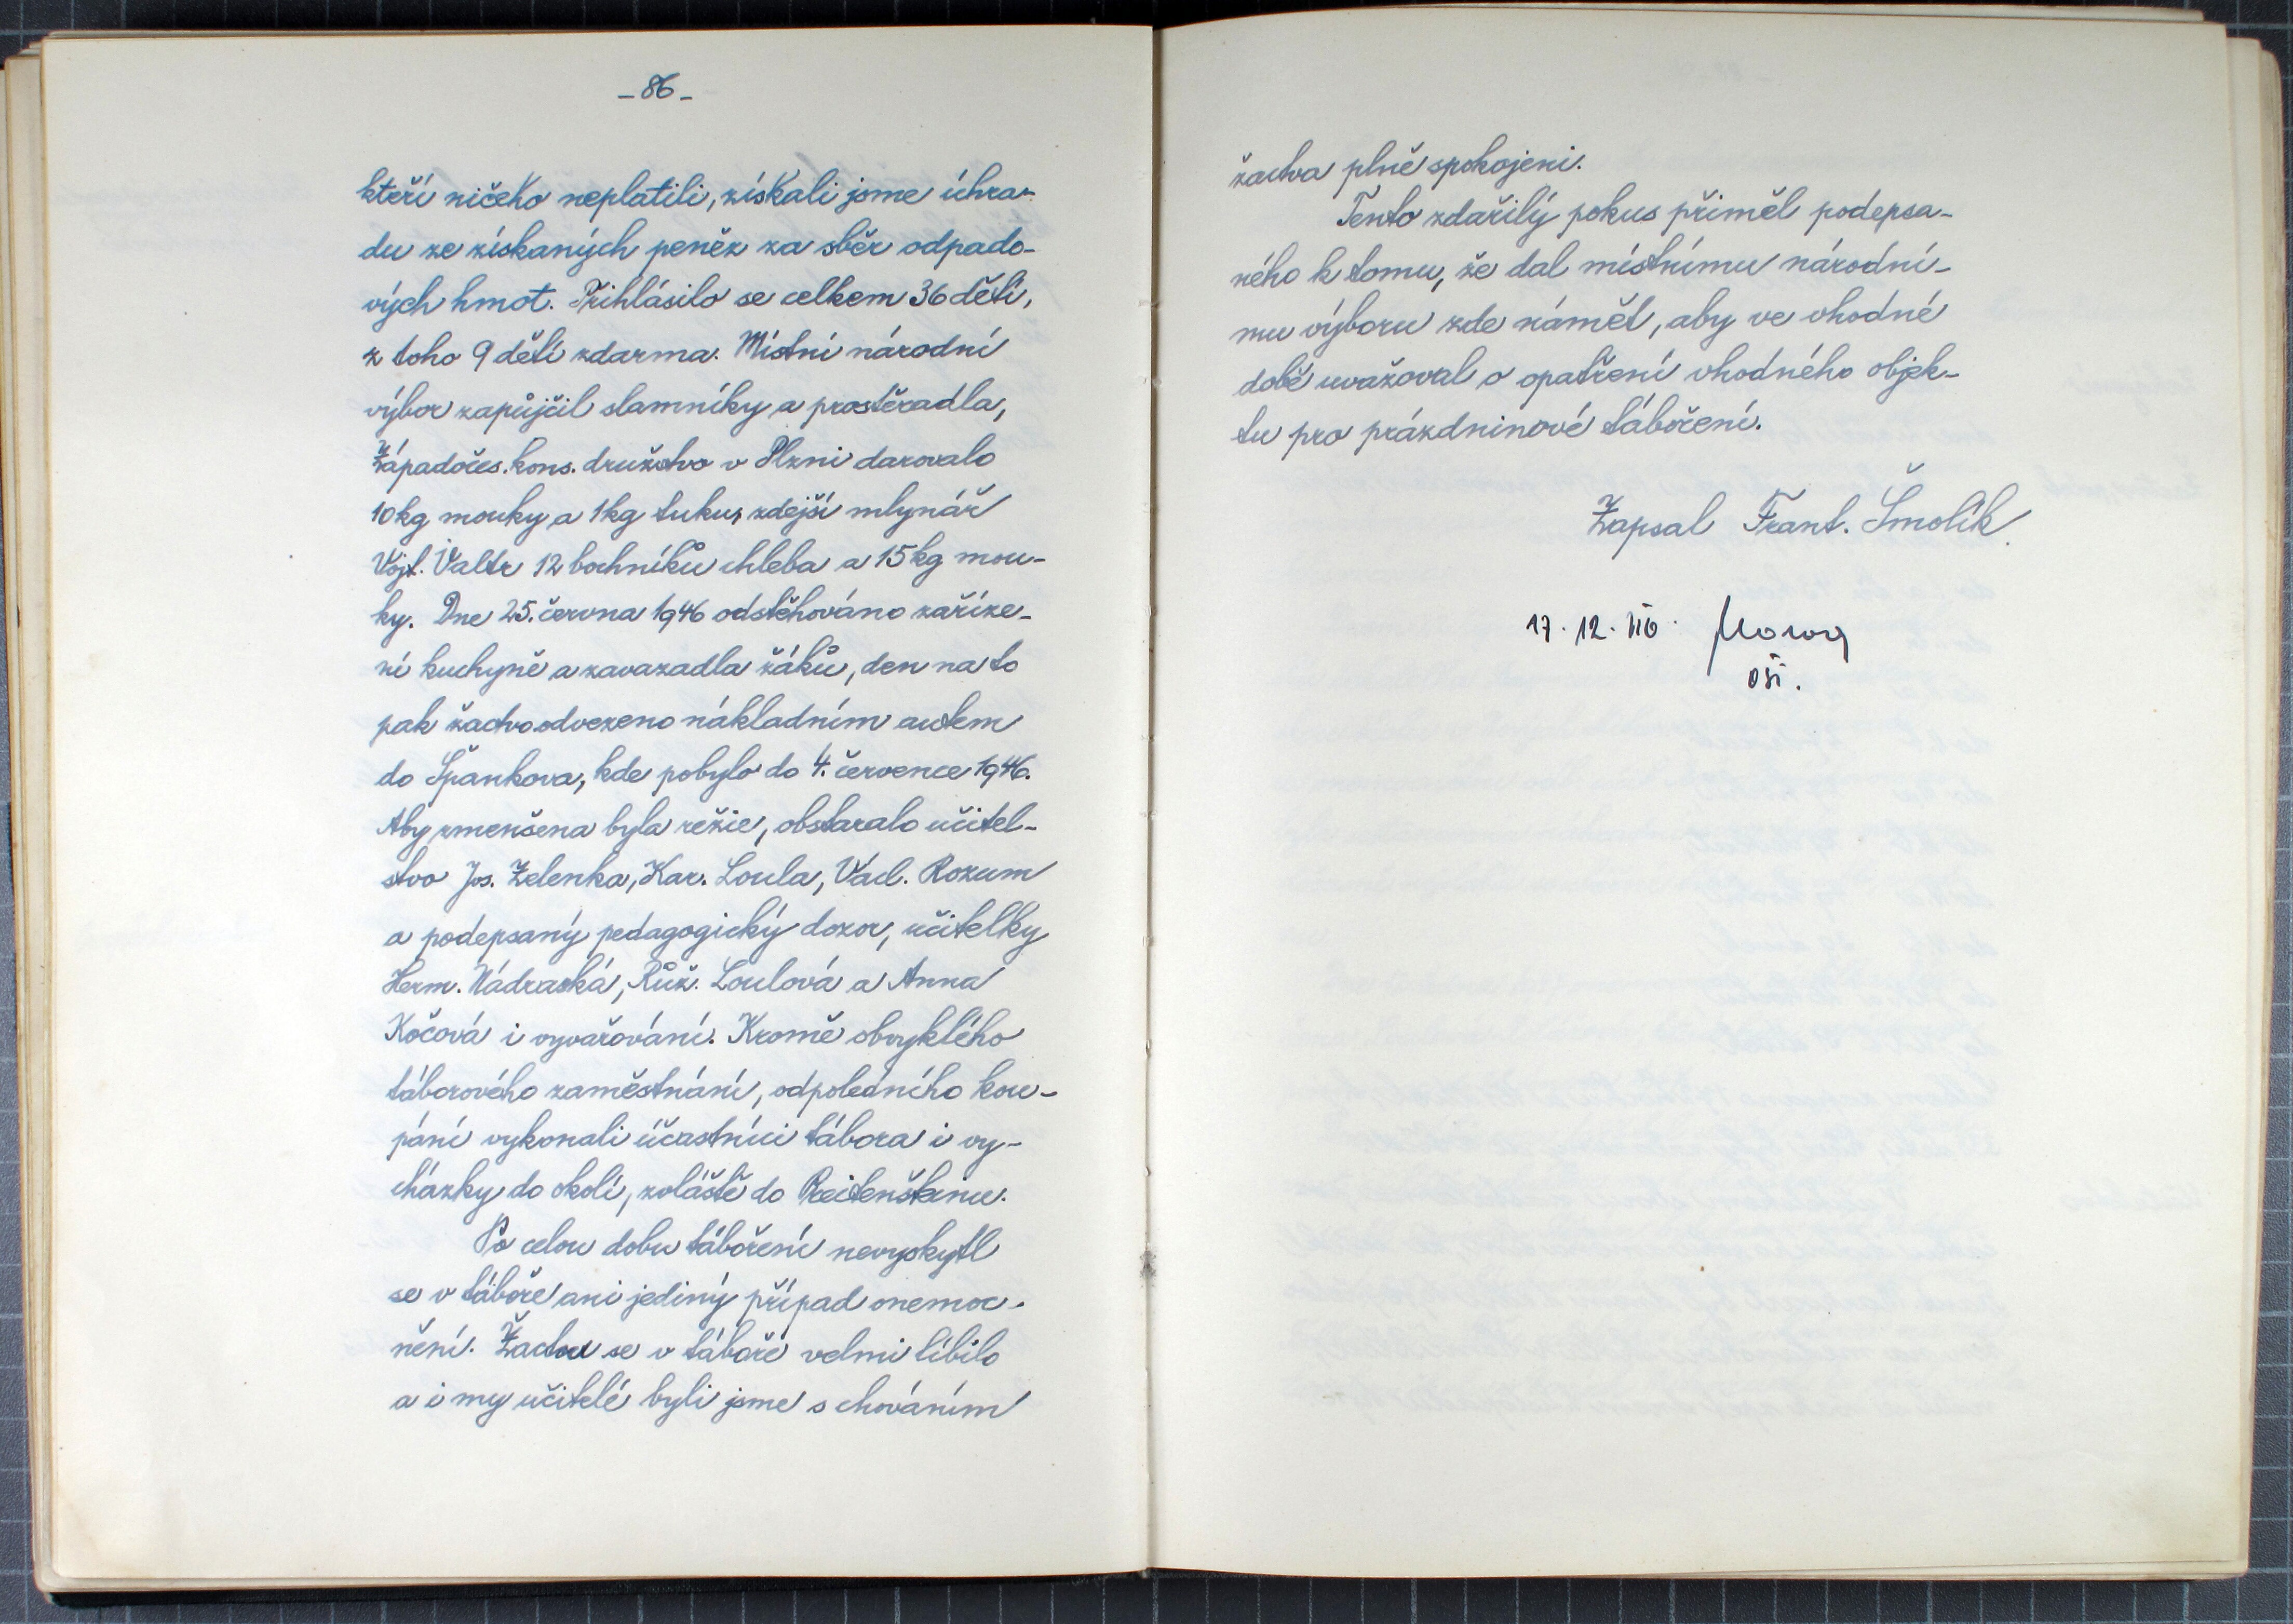 - 86 -
kteří ničeho neplatili, získali jsme úhra-
du ze získaných peněz za sběr odpado-
vých hmot. Přihlásilo se celkem 36 dětí,
z toho 9 dětí zdarma. Místní národní
výbor zapůjčil slamníky a prostěradla,
Západočes. kons. družstvo v Plzni darovalo
10 kg mouky a 1 kg tuku, zdejší mlynář
Vojt. Valtr 12 bochníků chleba a 15 kg mou-
ky. Dne 25. června 1946 odstěhováno zaříze-
ní kuchyně a zavazadla žáků, den na to
pak žactvo odvezeno nákladním autem
do Špankova, kde pobylo do 4. července 1946.
Aby zmenšena byla režie, obstaralo učitel-
stvo Jos. Zelenka, Kar. Loula, Václ. Rozum
a podepsaný pedagogický dozor, učitelky
Herm. Nádraská, Růž. Loulová a Anna
Kočová i vyvařování. Kromě obvyklého
táborového zaměstnání, odpoledního kou-
pání vykonali účastníci tábora i vy-
cházky do okolí, zvláště do Preitenštejnu.
Po celou dobu táboření nevyskytl
se v táboře ani jediný případ onemoc-
nění. Žactvu se v táboře velmi líbilo
a i my učitelé byli jsme s chováním
žactva plně spokojeni.
Tento zdařilý pokus přiměl podepsa-
ného k tomu, že dal místnímu národní-
mu výboru zde námět, aby ve vhodné
době uvažoval o opatření vhodného objek-
tu pro prázdninové táboření.
Zapsal Frant. Šmolík
17. 12. 46.
oši.